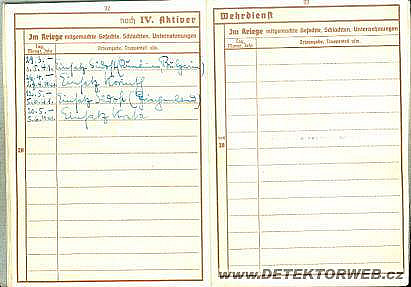 32
noch IV. Aktiver
Im Kriege mitgemachte Gefechte, Schlachten, Unternehmungen
Tag, Monat, Jahr
Ortsangabe, Truppenteil usw.
29.3. –
Einsatz Südost (Rumänien Bulgarien)
Einsatz
20.5. –
Einsatz Südost (Griechenland)
20.5. –
Einsatz Kreta
28
33
Wehrdienst
Im Kriege mitgemachte Gefechte, Schlachten, Unternehmungen
Tag, Monat, Jahr
Ortsangabe, Truppenteil usw.
noch
28
WWW.DETEKTORWEB.CZ